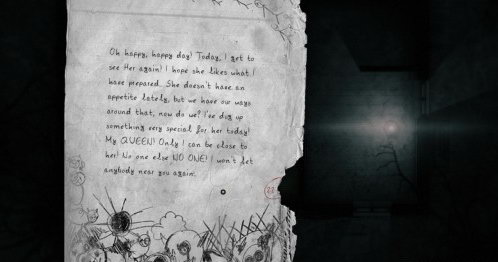 Oh happy, happy day! Today, I get to
see Her again! I hope she likes what I
have prepared. She doesn't have an
appetite lately, but we have our ways
around that, now do we? I've dug up
something very special for her today!
My QUEEN! Only I can be close to
her! No one else NO ONE! I won't let
anybody near you again.